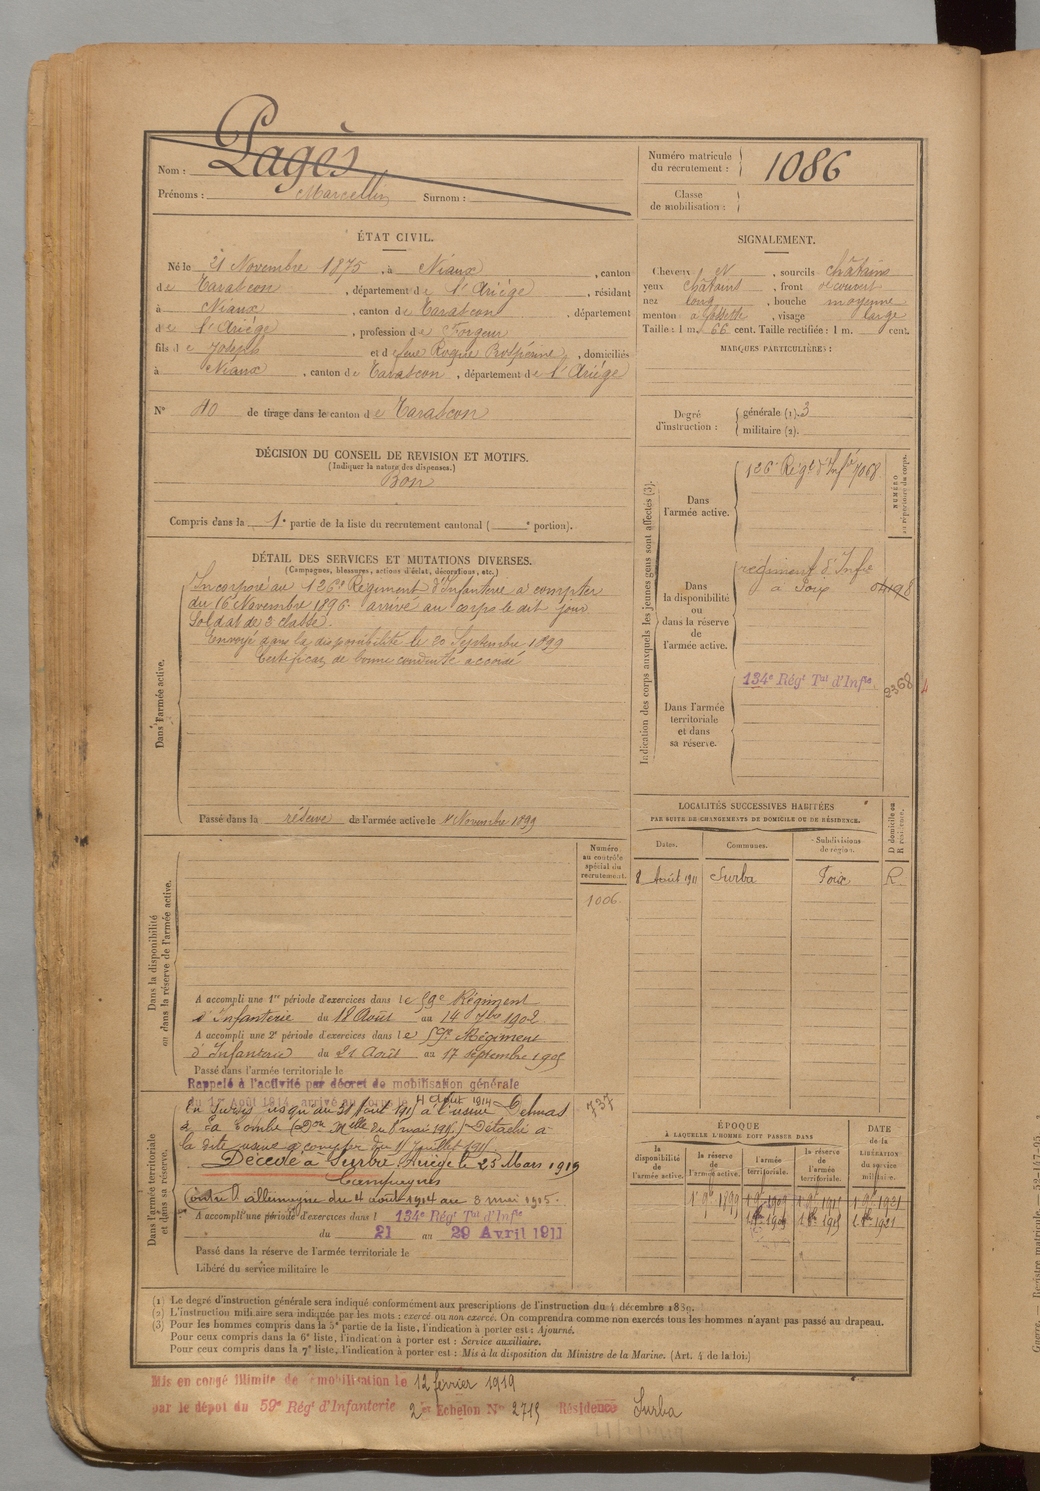 Nom : Pagès
Prénoms : Marcellin Surnom :
Numéro matricule du recrutement : 1086
Classe de mobilisation :
ÉTAT CIVIL.
Né le 21 Novembre 1875, à Niaux, canton
de Tarascon, département de l'Ariège, résidant
à Niaux, canton de Tarascon, département
de l'Ariège, profession de Forgeur
fils de Joseph et de feue Roque, domiciliés
à Niaux, canton de Tarascon, département de l'Ariège
N° 40 de tirage dans le canton de Tarascon
DÉCISION DU CONSEIL DE REVISION ET MOTIFS.
(Indiquer la nature des dispenses.)
Bon
Compris dans la 1e partie de la liste du recrutement cantonal ( e portion).
SIGNALEMENT.
Cheveux et, sourcils châtains
yeux châtains, front découvert
nez long, bouche moyenne
menton à fossette, visage large
Taille : 1 m. 66 cent. Taille rectifiée : 1 m. cent.
MARQUES PARTICULIÈRES :
Degré d'instruction : générale (1). 3
militaire (2).
DÉTAIL DES SERVICES ET MUTATIONS DIVERSES.
(Campagnes, blessures, actions d'éclat, décorations, etc.)
Dans l'armée active.
Incorporé au 126e Régiment d'Infanterie à compter
du 16 Novembre 1896. arrivé au corps le dit jour
Soldat de 2 classe.
Envoyé dans la disponibilité le 20 Septembre 1899
Certificat de bonne conduite accordé
Passé dans la réserve de l'armée active le 1 Novembre 1899
Indication des corps auxquels les jeunes gens sont affectés (3).
NUMÉRO au répertoire du corps.
Dans l'armée active.
126e Régt d'Infie 7068
Dans la disponibilité ou dans la réserve de l'armée active.
régiment d'Infie
à Foix
Dans l'armée territoriale et dans sa réserve.
134e Régt Tal d'Infie. 2368
LOCALITÉS SUCCESSIVES HABITÉES
PAR SUITE DE CHANGEMENTS DE DOMICILE OU DE RÉSIDENCE.
Dates. Communes. Subdivisions de région. D domicile ou R résidence.
8 Août 1911 Surba Foix R
Dans la disponibilité ou dans la réserve de l'armée active.
Numéro au contrôle spécial du recrutement.
1006
A accompli une 1re période d'exercices dans le 59e Régiment
d'Infanterie du 18 Août au 14 7bre 1902
A accompli une 2e période d'exercices dans le 59e Régiment
d'Infanterie du 21 Août au 17 septembre 1905
Passé dans l'armée territoriale le
Dans l'armée territoriale et dans sa réserve.
Rappelé à l'activité par décret de mobilisation générale
du 1er Août 1914, arrivé au corps le 4 août 1914
En sursis jusqu'au à l'usine Delmas
Détaché à
la dite usine à compter du 11 juillet
Décédé à Surba Ariège le 23 Mars 1919
Campagnes
Contre l'allemagne du 4 août 1914 au 8 mai 1915.
737
A accompli une période d'exercices dans l 134e Régt Tal d'Infie
du 21 au 29 Avril 1911
Passé dans la réserve de l'armée territoriale le
Libéré du service militaire le
ÉPOQUE
A LAQUELLE L'HOMME DOIT PASSER DANS
DATE de la LIBÉRATION du service militaire.
la disponibilité de l'armée active. la réserve de l'armée active. l'armée territoriale. la réserve de l'armée territoriale.
1 9bre 1899 1 9bre 1909 1 9bre 1915 1 9bre 1921
(1) Le degré d'instruction générale sera indiqué conformément aux prescriptions de l'instruction du 4 décembre 1889.
(2) L'instruction militaire sera indiquée par les mots : exercé ou non exercé. On comprendra comme non exercés tous les hommes n'ayant pas passé au drapeau.
(3) Pour les hommes compris dans la 5e partie de la liste, l'indication à porter est : Ajourné.
Pour ceux compris dans la 6e liste, l'indication à porter est : Service auxiliaire.
Pour ceux compris dans la 7e liste, l'indication à porter est : Mis à la disposition du Ministre de la Marine. (Art. 4 de la loi.)
Mis en congé illimité de démobilisation le 12 février 1919
par le dépôt du 59e Régt d'Infanterie 2e Echelon No 2719 Résidence Surba